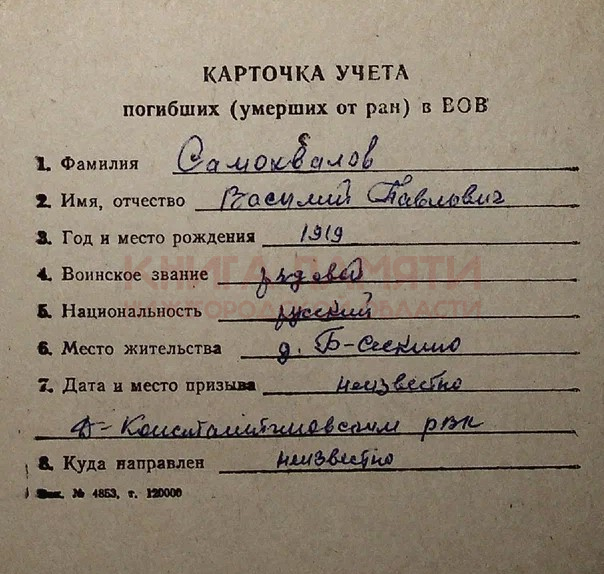 КАРТОЧКА УЧЕТА
погибших (умерших от ран) в ВОВ
1. Фамилия Самохвалов
2. Имя, отчество Василий Павлович
3. Год и место рождения 1919
4. Воинское звание рядовой
КНИГА ПАМЯТИ
НИЖЕГОРОДСКОЙ ОБЛАСТИ
5. Национальность русский
6. Место жительства д. Б-Сескино
7. Дата и место призыва неизвестно
Д-Константиновским рвк
8. Куда направлен неизвестно
Зак. № 4853, т. 120000